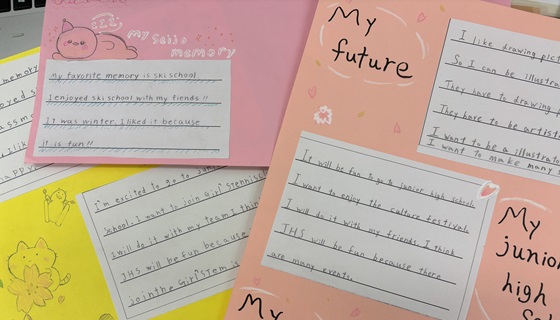 my seijo
memory
my favorite memory is ski school
I enjoyed ski school with my fiends !!
It was winter. I liked it because
it is fun!!
My
future
I like drawing pict
So I can be illustr
They have to drawing
They have to be artist
I want to be a illustrat
I want to make many s
It will be fun to go to junior high school.
I want to enjoy the culture festival.
I will do it with my friends. I think
JHS will be fun because there
are many events.
My
junio
high
My
memor
I'm excited to go to
school. I want to join Girl's tennis
I will do it with my team I thin
JHS will be fun because
join the Girl's tem is